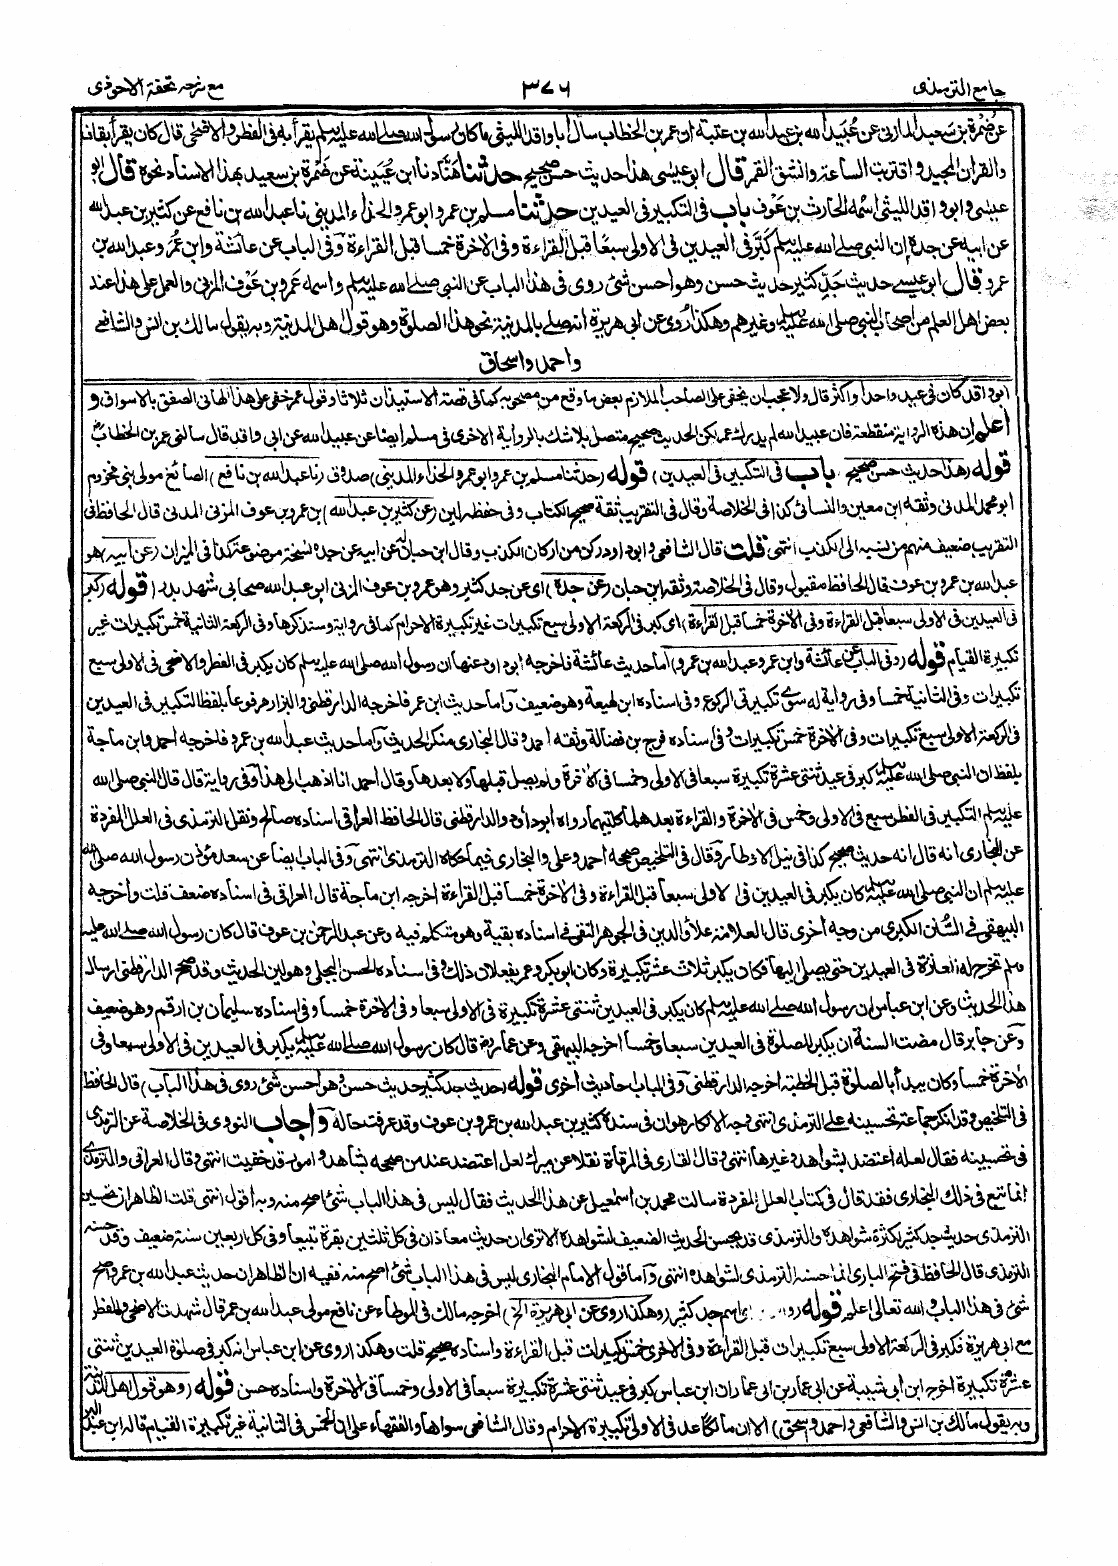 جامع الترمذى ٣٧٦ مع شرحه تحفة الاحوذى
عن ضمرة بن سعيد المازنى عن عبيد الله بن عبد الله بن عتبة ان عمر بن الخطاب سأل ابا واقد الليثى ما كان رسول الله صلى الله عليه وسلم يقرأ به فى الفطر والاضحى قال كان يقرأ بقاف
والقران المجيد واقتربت الساعة وانشق القمر قال ابو عيسى هذا حديث حسن صحيح حدثنا هناد نا ابن عيينة عن ضمرة بن سعيد بهذا الاسناد نحوه قال ابو
عيسى وابو واقد الليثى اسمه الحارث بن عوف باب فى التكبير فى العيدين حدثنا مسلم بن عمرو ابو عمرو الحذاء المدينى نا عبد الله بن نافع عن كثير بن عبد الله
عن ابيه عن جده ان النبى صلى الله عليه وسلم كبر فى العيدين فى الاولى سبعا قبل القراءة وفى الاخرة خمسا قبل القراءة وفى الباب عن عائشة وابن عمر وعبد الله بن
عمرو قال ابو عيسى حديث جد كثير حديث حسن وهو احسن شئ روى فى هذا الباب عن النبى صلى الله عليه وسلم واسمه عمرو بن عوف المزنى والعمل على هذا عند
بعض اهل العلم من اصحاب النبى صلى الله عليه وسلم وغيرهم وهكذا روى عن ابى هريرة انه صلى بالمدينة نحو هذا الصلوة وهو قول اهل المدينة وبه يقول مالك بن انس والشافعى
واحمد واسحاق
ابو واقد كان فى عيد واحد او اكثر قال ولا عجب ان يخفى على الصاحب الملازم بعض ما وقع من مصحوبه كما فى قصة الاستيذان ثلاثا وقول عمر خفى على هذا الهانى الصفق بالاسواق و
اعلم ان هذه الرواية منقطعة فان عبيد الله لم يدرك عمر لكن الحديث صحيح متصل بلا شك بالرواية الاخرى فى مسلم ايضا عن عبيد الله عن ابى واقد قال سالنى عمر بن الخطاب
قوله (هذا حديث حسن صحيح باب فى التكبير فى العيدين) قوله (حدثنا مسلم بن عمرو ابو عمرو الحذاء المدينى) صدوق (نا عبد الله بن نافع) الصائغ مولى بنى مخزوم
ابو محمد المدنى وثقه ابن معين والنسائى كذا فى الخلاصة وقال فى التقريب ثقة صحيح الكتاب وفى حفظه لين (عن كثير بن عبد الله) بن عمرو بن عوف المزنى المدنى قال الحافظ فى
التقريب ضعيف منهم من نسبه الى الكذب انتهى قلت قال الشافعى وابو داود ركن من اركان الكذب وقال ابن حبان له عن ابيه عن جده نسخة موضوعة كذا فى الميزان (عن ابيه) هو
عبد الله بن عمرو بن عوف قال الحافظ مقبول وقال فى الخلاصة وثقه ابن حبان (عن جده) اى عن جد كثير وهو عمرو بن عوف المزنى ابو عبد الله صحابى شهد بدرا قوله (كبر
فى العيدين فى الاولى سبعا قبل القراءة وفى الاخرة خمسا قبل القراءة) اى كبر فى الركعة الاولى سبع تكبيرات غير تكبيرة الاحرام كما فى رواية وسنذكرها وفى الركعة الثانية خمس تكبيرات غير
تكبيرة القيام قوله (وفى الباب عن عائشة وابن عمر وعبد الله بن عمرو) اما حديث عائشة فاخرجه ابو داود عنها ان رسول الله صلى الله عليه وسلم كان يكبر فى الفطر والاضحى فى الاولى سبع
تكبيرات وفى الثانية خمسا وفى رواية له سوى تكبيرتى الركوع وفى اسناده ابن لهيعة وهو ضعيف واما حديث ابن عمر فاخرجه الدارقطنى والبزار مرفوعا بلفظ التكبير فى العيدين
فى الركعة الاولى سبع تكبيرات وفى الاخرة خمس تكبيرات وفى اسناده فرج بن فضالة وثقه احمد وقال البخارى منكر الحديث واما حديث عبد الله بن عمرو فاخرجه احمد وابن ماجة
بلفظ ان النبى صلى الله عليه وسلم كبر فى عيد ثنتى عشرة تكبيرة سبعا فى الاولى وخمسا فى الاخرة ولم يصل قبلها ولا بعدها وقال احمد انا اذهب الى هذا وفى رواية قال قال النبى صلى الله
عليه وسلم التكبير فى الفطر سبع فى الاولى وخمس فى الاخرة والقراءة بعدهما كلتيهما رواه ابو داود والدارقطنى قال الحافظ العراقى اسناده صالح ونقل الترمذى فى العلل المفردة
عن البخارى انه قال انه حديث صحيح كذا فى نيل الاوطار وقال فى التلخيص صححه احمد وعلى والبخارى فيما حكاه الترمذى انتهى وفى الباب ايضا عن سعد مؤذن رسول الله صلى الله
عليه وسلم ان النبى صلى الله عليه وسلم كان يكبر فى العيدين فى الاولى سبعا قبل القراءة وفى الاخرة خمسا قبل القراءة اخرجه ابن ماجة قال العراقى فى اسناده ضعف قلت واخرجه
البيهقى فى السنن الكبرى من وجه اخرى قال العلامة علاؤ الدين فى الجوهر النقى فى اسناده بقية وهو متكلم فيه وعن عبد الرحمن بن عوف قال كان رسول الله صلى الله عليه
وسلم تخرج له العنزة فى العيدين حتى يصلى اليها فكان يكبر ثلاث عشرة تكبيرة وكان ابو بكر وعمر يفعلان ذلك وفى اسناده الحسن البجلى وهو لين الحديث وقد صحح الدارقطنى ارسال
هذا الحديث وعن ابن عباس ان رسول الله صلى الله عليه وسلم كان يكبر فى العيدين ثنتى عشرة تكبيرة فى الاولى سبعا وفى الاخرة خمسا وفى اسناده سليمان بن ارقم وهو ضعيف
وعن جابر قال مضت السنة ان يكبر للصلوة فى العيدين سبعا وخمسا اخرجه البيهقى وعن عمارة قال كان رسول الله صلى الله عليه وسلم يكبر فى العيدين فى الاولى سبعا وفى
الاخرة خمسا وكان يبدأ بالصلوة قبل الخطبة اخرجه الدارقطنى وفى الباب احاديث اخرى قوله (حديث جد كثير حديث حسن وهو احسن شئ روى فى هذا الباب) قال الحافظ
فى التلخيص وقد انكر جماعة تحسينه على الترمذى انتهى وجه الانكار هو ان فى سنده كثير بن عبد الله بن عمرو بن عوف وقد عرفت حاله واجاب النووى فى الخلاصة عن الترمذى
فى تحسينه فقال لعله اعتضد بشواهد وغيرها انتهى وقال القارى فى المرقاة نقلا عن ميرك لعل اعتضد عند من صححه بشاهد وامور قد خفيت انتهى وقال العراقى والترمذى
انما تبع فى ذلك البخارى فقد قال فى كتاب العلل المفردة سالت محمد بن اسمعيل عن هذا الحديث فقال ليس فى هذا الباب شئ اصح منه وبه اقول انتهى قلت الظاهر ان تحسين
الترمذى حديث جد كثير لكثرة شواهده والترمذى قد يحسن الحديث الضعيف لشواهده الا ترى ان حديث معاذ ان فى كل ثلثين بقرة تبيعا وفى كل اربعين سنة ضعيف وقد حسنه
الترمذى قال الحافظ فى فتح البارى انما حسنه الترمذى لشواهده انتهى واما قول الامام البخارى ليس فى هذا الباب شئ اصح منه ففيه ان الظاهر ان حديث عبد الله بن عمرو اصح
شئ فى هذا الباب والله تعالى اعلم قوله اى اسم جد كثير (وهكذا روى عن ابى هريرة الخ) اخرجه مالك فى الموطا عن نافع مولى عبد الله بن عمر قال شهدت الاضحى والفطر
مع ابى هريرة فكبر فى الركعة الاولى سبع تكبيرات قبل القراءة وفى الاخرى خمس تكبيرات قبل القراءة واسناده صحيح قلت وهكذا روى عن ابن عباس انه كبر فى صلوة العيدين ثنتى
عشرة تكبيرة اخرجه ابن ابى شيبة عن ابى عمار بن ابى عمار ان ابن عباس كبر فى عيد ثنتى عشرة تكبيرة سبعا فى الاولى وخمسا فى الاخرة واسناده حسن قوله (وهو قول اهل المدينة
وبه يقول مالك بن انس والشافعى واحمد واسحق) الا ان مالكا عد فى الاولى تكبيرة الاحرام وقال الشافعى سواها والفقهاء على ان الخمس فى الثانية غير تكبيرة القيام قاله ابن عبد البر